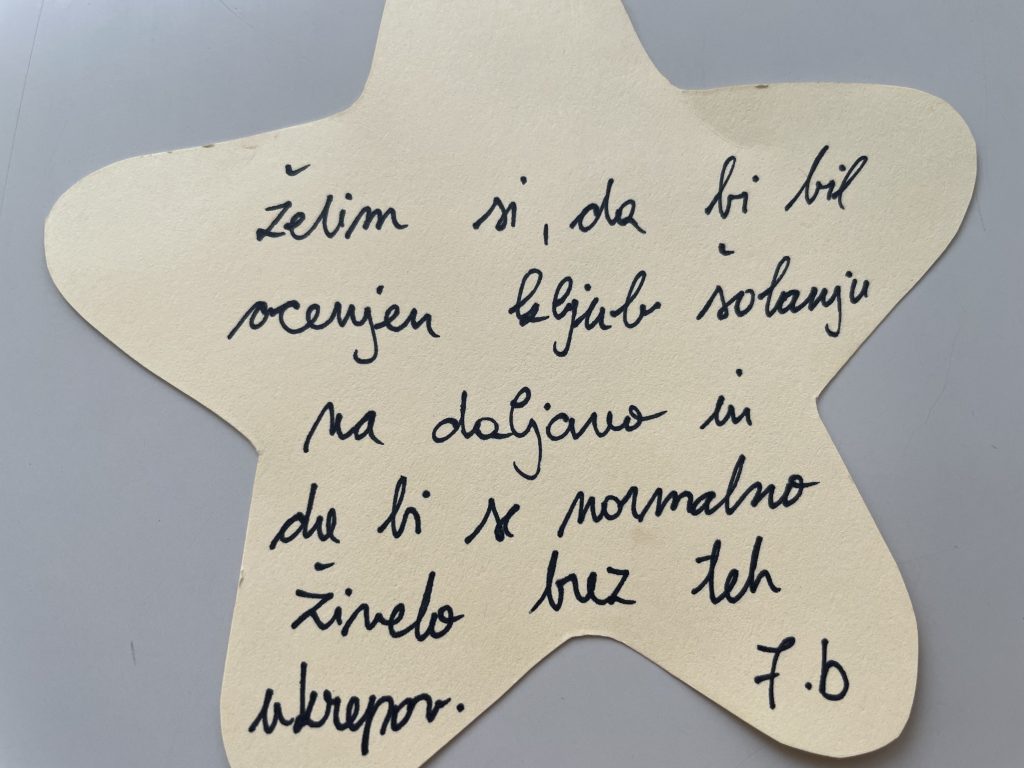 želim si, da bi bil
ocenjen kljub šolanju
na daljavo in
da bi se normalno
živelo brez teh
ukrepov. 7.b